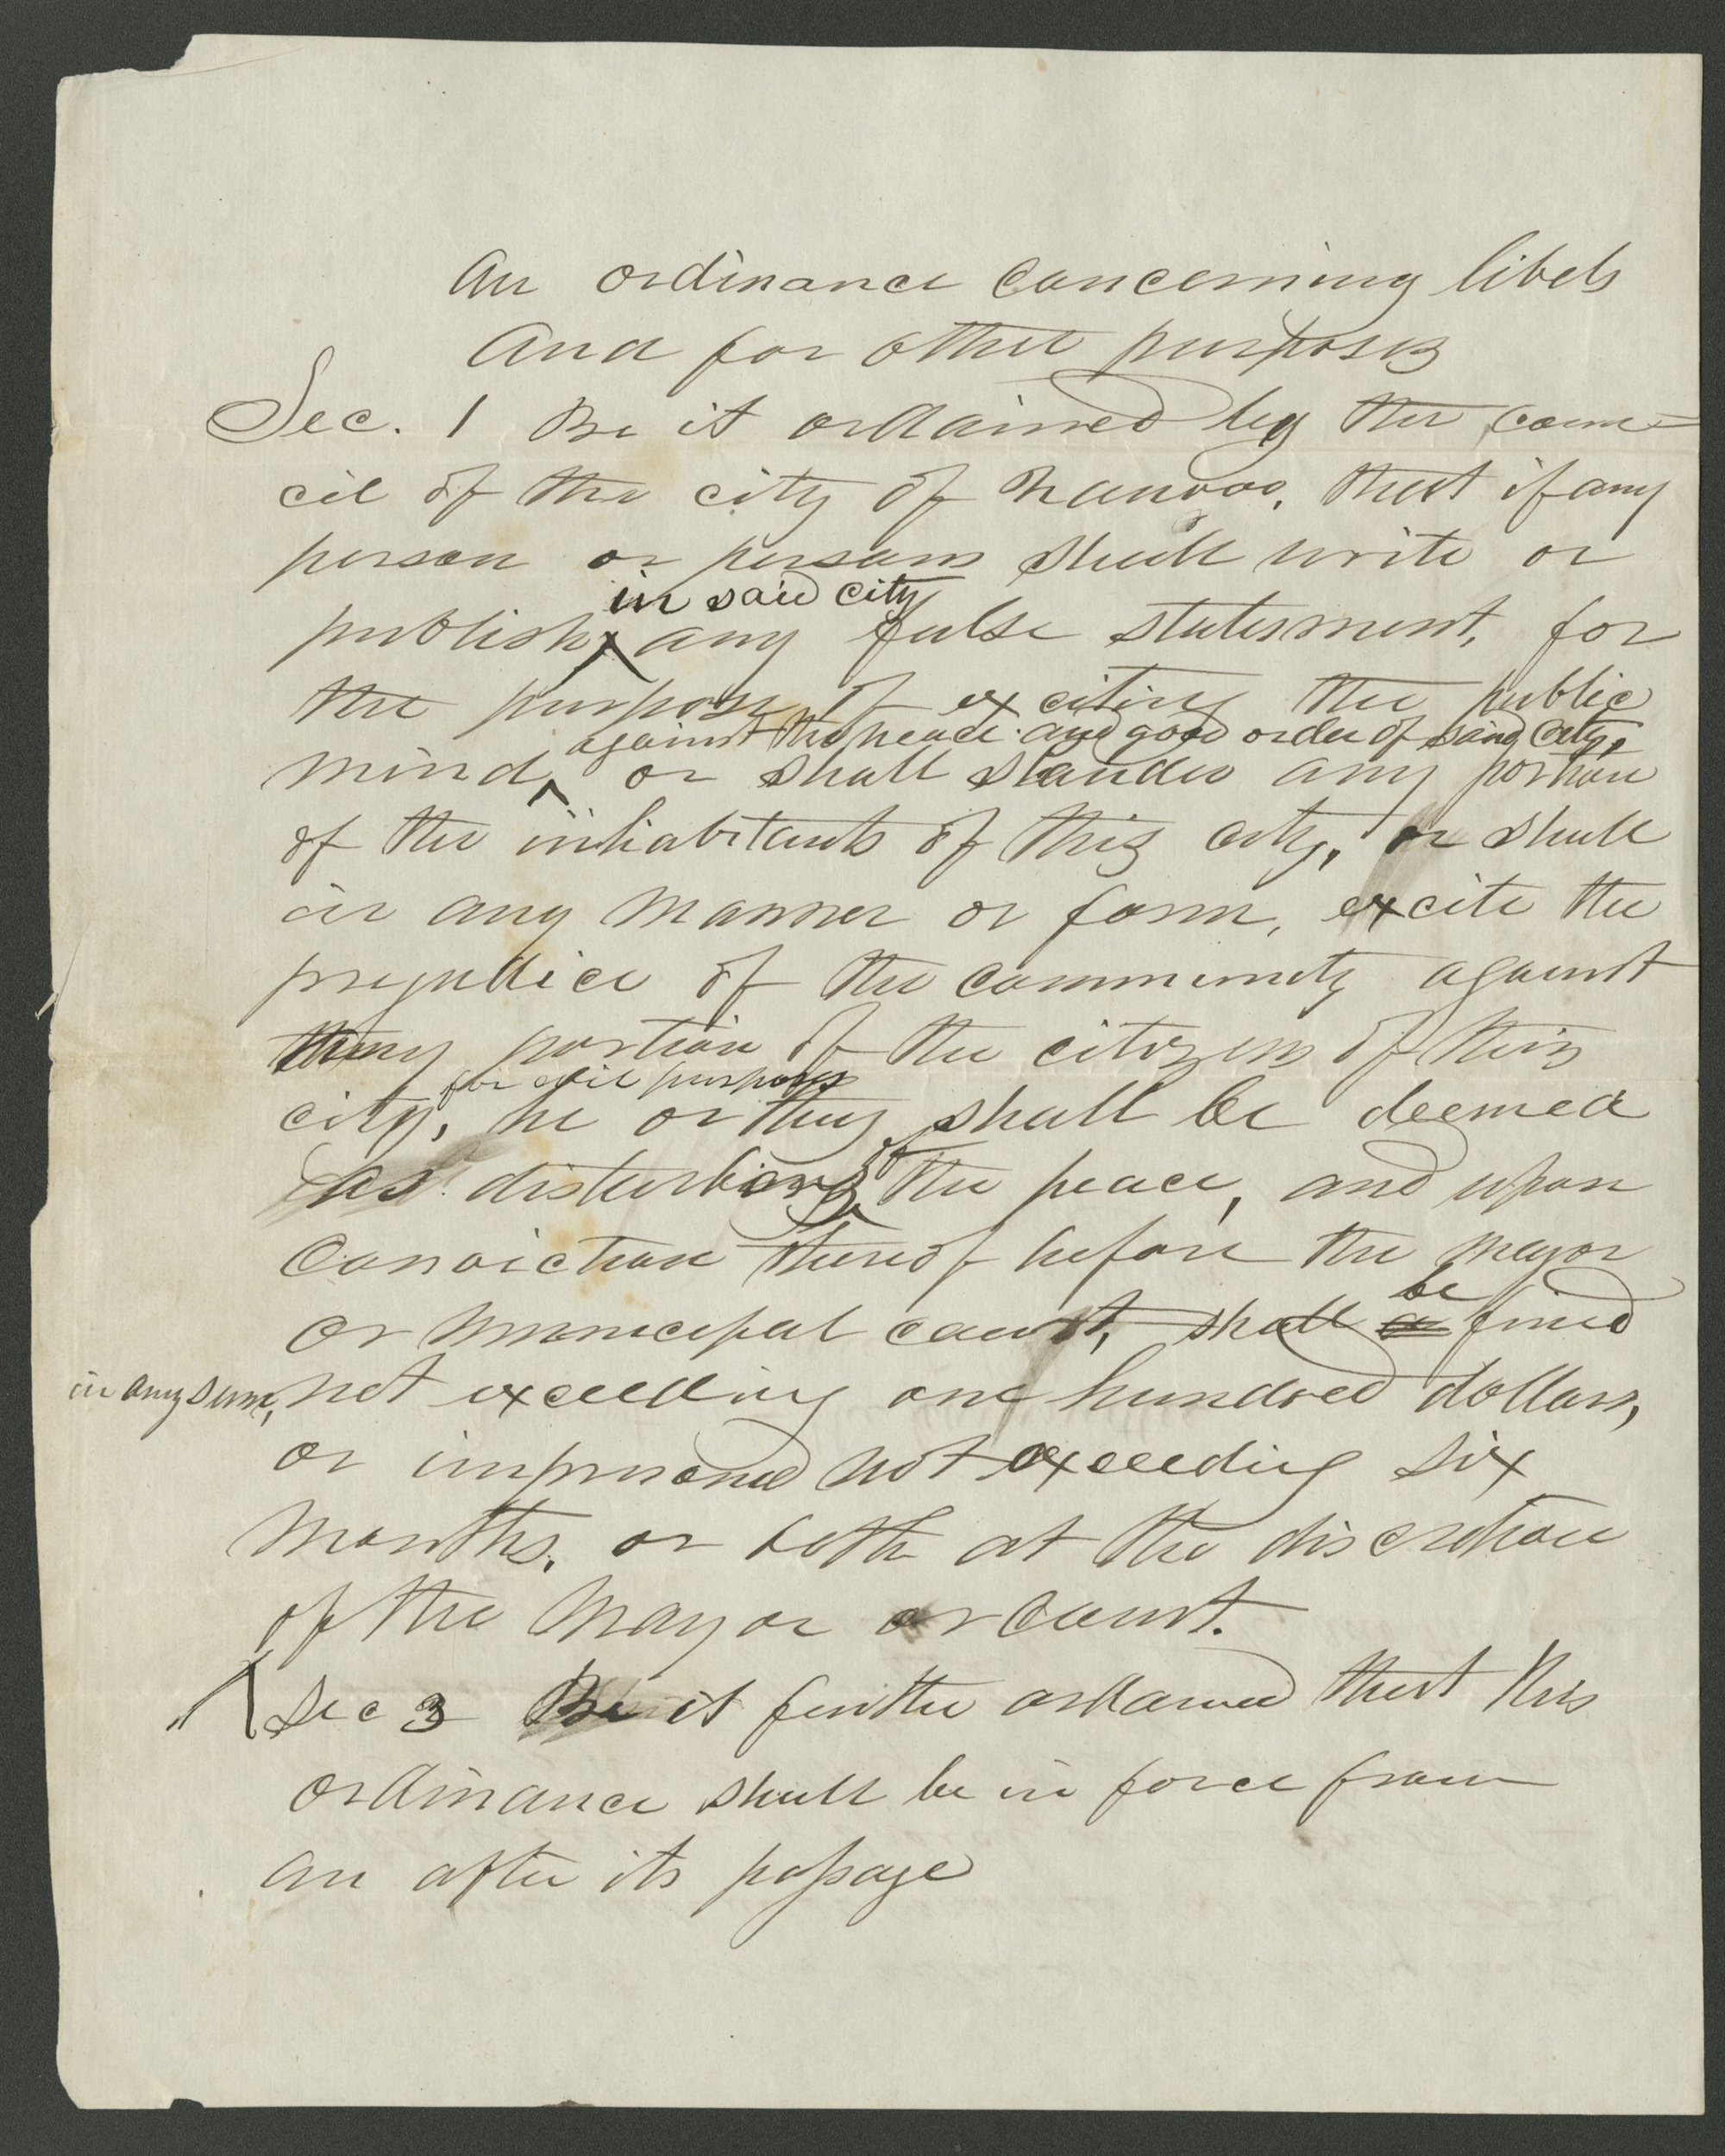 An ordinance concerning libels
And for other purposes
Sec. 1 Be it ordained by the coun=
cil of the city of Nauvoo, that if any
person or persons shall write or
in said city
publish, any false statesment, for
the purpose of exciting the public
against the peace and good order of said city,
mind, or shall slander any portion
of the inhabitants of this city, or shall
in any manner or form, excite the
prejudice of the community against
any portion of the citizens of this
for evil purposes
city, he or they shall be deemed
of
as disturbing the peace, and upon
Conviction thereof before the mayor
be
or municipal court, shall a fined
in any sum, not exceeding one hundred dollars,
or imprisoned not exceeding six
months, or both at the discretion
of the Mayor or Court.
Sec 3 Be it further ordained that this
ordinance shall be in force from
an after its passage